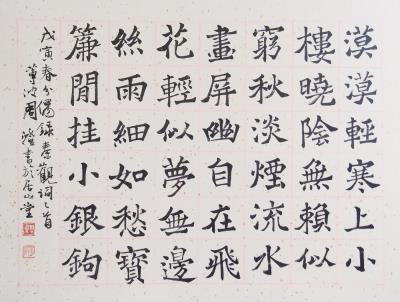 漠漠輕寒上小
樓曉陰無賴似
窮秋淡煙流水
畫屏幽自在飛
花輕似夢無邊
絲雨細如愁寶
簾閒挂小銀鉤
戊寅春分偶錄秦觀詞一首
周澄書於居山堂